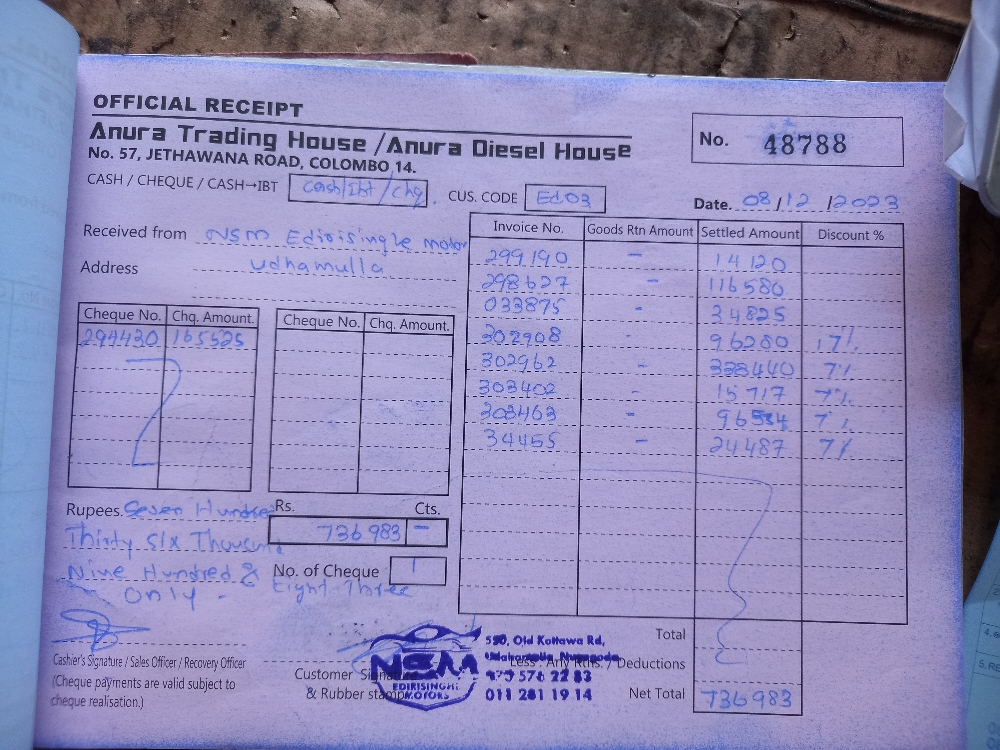 OFFICIAL RECEIPT
Anura Trading House /Anura Diesel House
No. 57, JETHAWANA ROAD, COLOMBO 14.
No. 48788
CASH / CHEQUE / CASH→IBT Cash/Ibt/chq. CUS. CODE Ed03
Date. 08/12/2023
Received from NSM Edirisingle motor
Address Udhamulla
Invoice No. Goods Rtn Amount Settled Amount Discount %
299190 - 14120
298627 - 116580
033875 - 34825
302908 - 96280 17%
302962 - 338440 7%
303402 - 15717 7%
303463 - 96534 7%
34455 - 24487 7%
Cheque No. Chq. Amount. Cheque No. Chq. Amount.
299430 165525
Rupees. Seven Hundred
Thirty Six Thousand
Nine Hundred &
Eight Three
Only -
Rs. Cts.
736983 -
No. of Cheque 1
Total
Less : Any Rtns. / Deductions
Net Total 736983
Cashier's Signature / Sales Officer / Recovery Officer
(Cheque payments are valid subject to
cheque realisation.)
Customer Signature
& Rubber stamp
NSM
EDIRISINGHE
MOTORS
550, Old Kottawa Rd,
Udahamulla, Nugegoda.
576 22 83
011 281 19 14